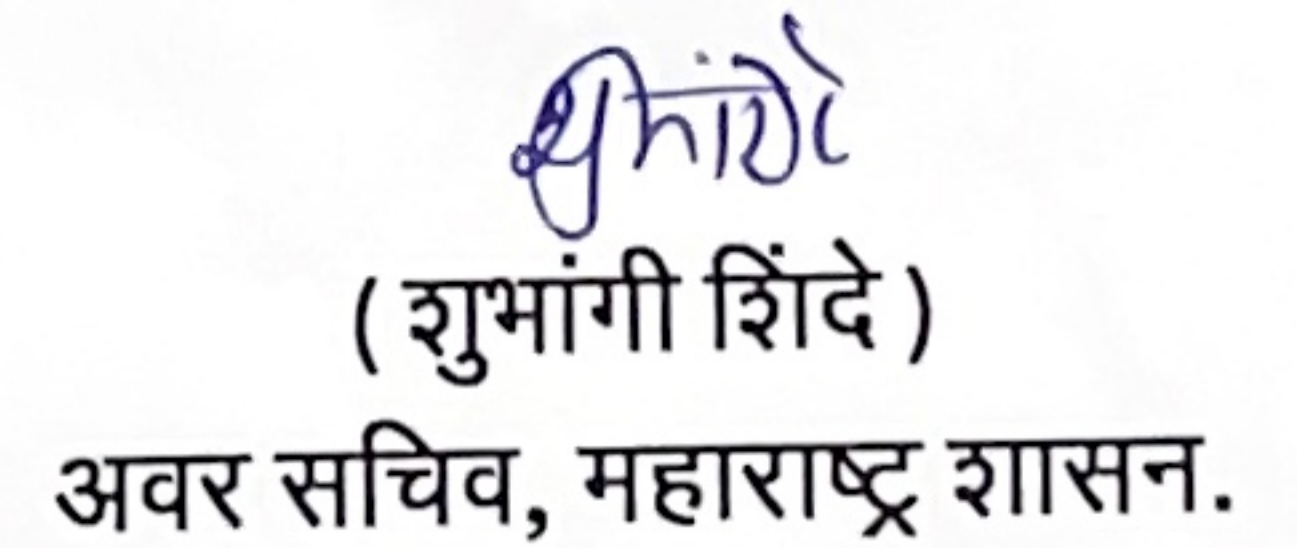 ( शुभांगी शिंदे )
अवर सचिव, महाराष्ट्र शासन.